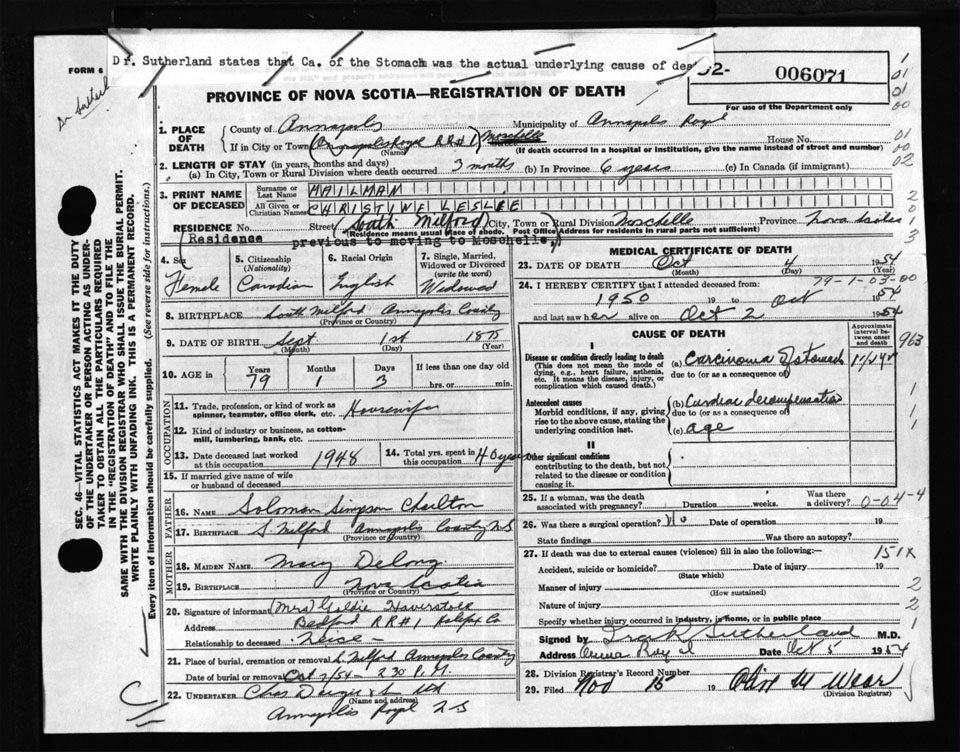 Dr. Sutherland states that Ca. of the Stomach was the actual underlying cause of dea
FORM 6
Dr Sutherl
52-
006071
For use of the Department only
PROVINCE OF NOVA SCOTIA—REGISTRATION OF DEATH
1. PLACE OF DEATH
County of Annapolis Municipality of Annapolis Royal
If in City or Town Annapolis Royal RR#1 Moschelle House No.
(Name) (If death occurred in a hospital or institution, give the name instead of street and number)
2. LENGTH OF STAY (in years, months and days)
(a) In City, Town or Rural Division where death occurred 3 months (b) In Province 6 years (c) In Canada (if immigrant)
3. PRINT NAME OF DECEASED
Surname or Last Name HAILMAN
All Given or Christian Names CHRISTINE LESLEE
RESIDENCE No. Street (South Milford) City, Town or Rural Division Moschelle Province Nova Scotia
(Residence means usual place of abode. Post Office Address for residents in rural parts not sufficient)
(Residence previous to moving to Moschelle,)
4. Sex Female
5. Citizenship (Nationality) Canadian
6. Racial Origin English
7. Single, Married, Widowed or Divorced (write the word) Widowed
8. BIRTHPLACE South Milford Annapolis County
(Province or Country)
9. DATE OF BIRTH Sept 1st 1875
(Month) (Day) (Year)
10. AGE in Years 79 Months 1 Days 3 If less than one day old hrs. or min.
OCCUPATION
11. Trade, profession, or kind of work as spinner, teamster, office clerk, etc. Housewife
12. Kind of industry or business, as cotton-mill, lumbering, bank, etc.
13. Date deceased last worked at this occupation 1948
14. Total yrs. spent in this occupation 40 years
15. If married give name of wife or husband of deceased
FATHER
16. NAME Soloman Simpson Charlton
17. BIRTHPLACE S Milford Annapolis County NS
(Province or Country)
MOTHER
18. MAIDEN NAME Mary DeLong
19. BIRTHPLACE Nova Scotia
(Province or Country)
20. Signature of informant (Mrs) Goldie Haverstock
Address Bedford RR#1 Halifax Co
Relationship to deceased Neice -
21. Place of burial, cremation or removal S. Milford Annapolis County
Date of burial or removal Oct 7/54 - 2 30 P.M.
22. UNDERTAKER Chas
(Name and address)
Annapolis Royal N S
MEDICAL CERTIFICATE OF DEATH
23. DATE OF DEATH Oct 4 1954
(Month) (Day) (Year)
79-1-03-00
24. I HEREBY CERTIFY that I attended deceased from:
1950 19 to Oct 1954
and last saw her alive on Oct 2 1954
CAUSE OF DEATH
Approximate interval between onset and death
963
I
Disease or condition directly leading to death
(This does not mean the mode of dying, e.g., heart failure, asthenia, etc. It means the disease, injury, or complication which caused death.)
(a) Carcinoma of stomach
due to (or as a consequence of)
Antecedent causes
Morbid conditions, if any, giving rise to the above cause, stating the underlying condition last.
(b) Cardiac decompensation
due to (or as a consequence of)
(c) age
II
Other significant conditions
contributing to the death, but not related to the disease or condition causing it.
25. If a woman, was the death associated with pregnancy? Duration weeks. Was there a delivery? 0-04-4
26. Was there a surgical operation? No Date of operation 19
State findings Was there an autopsy?
27. If death was due to external causes (violence) fill in also the following:—
151X
Accident, suicide or homicide? Date of injury 19
(State which)
Manner of injury
(How sustained)
Nature of injury
Specify whether injury occurred in industry, in home, or in public place
Signed by Sutherland M.D.
Address Anna Royal Date Oct 5 1954
28. Division Registrar's Record Number
29. Filed Nov 15 19 Olive M Wear
(Division Registrar)
SEC. 46—VITAL STATISTICS ACT MAKES IT THE DUTY OF THE UNDERTAKER OR PERSON ACTING AS UNDERTAKER TO OBTAIN ALL THE PARTICULARS REQUIRED IN THE "REGISTRATION OF DEATH" AND TO FILE THE SAME WITH THE DIVISION REGISTRAR WHO SHALL ISSUE THE BURIAL PERMIT.
WRITE PLAINLY WITH UNFADING INK. THIS IS A PERMANENT RECORD.
Every item of information should be carefully supplied. (See reverse side for instructions.)